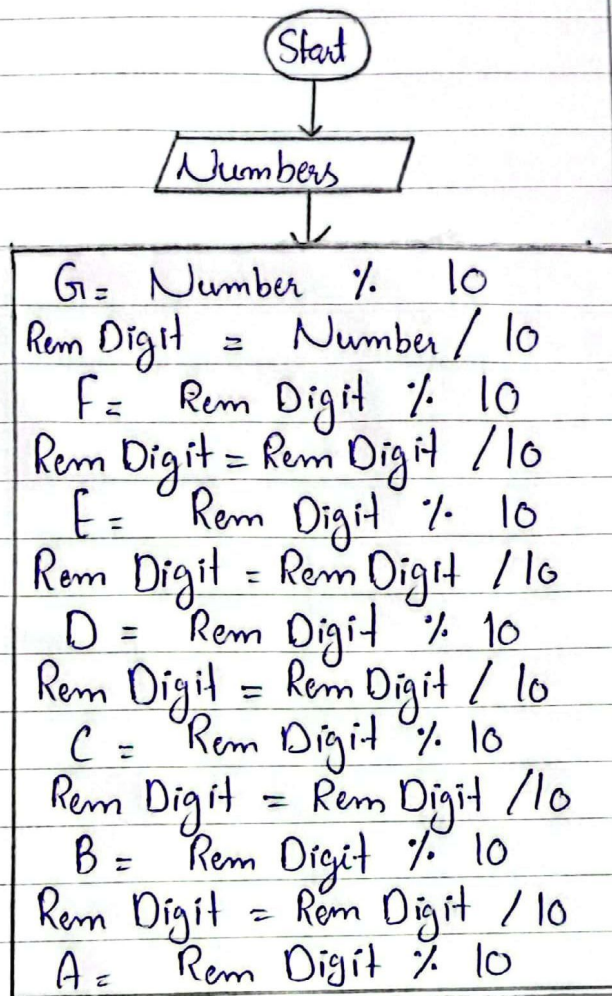 Start
Numbers
G= Number % 10
Rem Digit = Number / 10
F= Rem Digit % 10
Rem Digit = Rem Digit /10
E= Rem Digit % 10
Rem Digit = Rem Digit /10
D = Rem Digit % 10
Rem Digit = Rem Digit / 10
C = Rem Digit % 10
Rem Digit = Rem Digit /10
B = Rem Digit % 10
Rem Digit = Rem Digit / 10
A = Rem Digit % 10